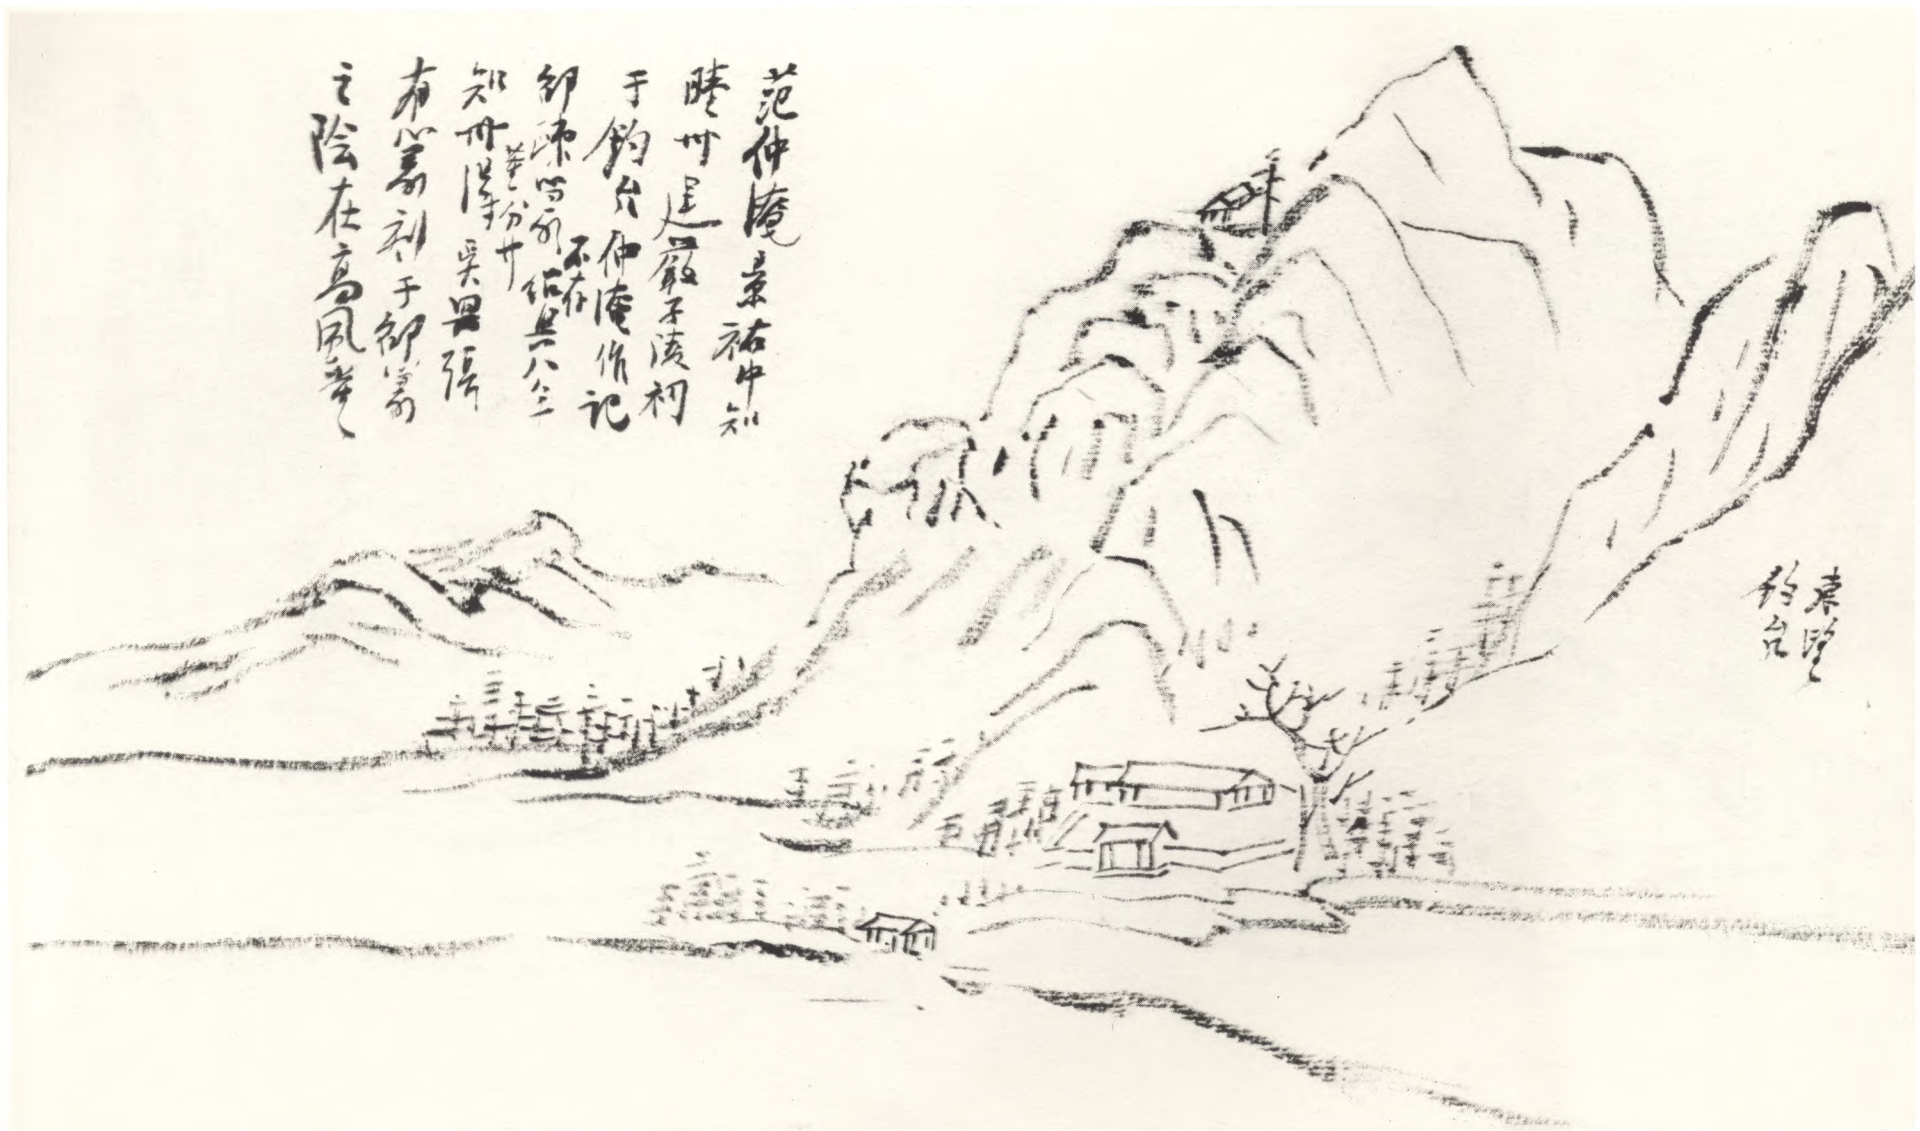 范仲淹景祐中知
睦州建嚴子陵祠
于釣台仲淹作記
邵餗不存紹興八年
知州董弅吳興張
有篆刻于邵篆
之陰在高風堂
東望
釣台